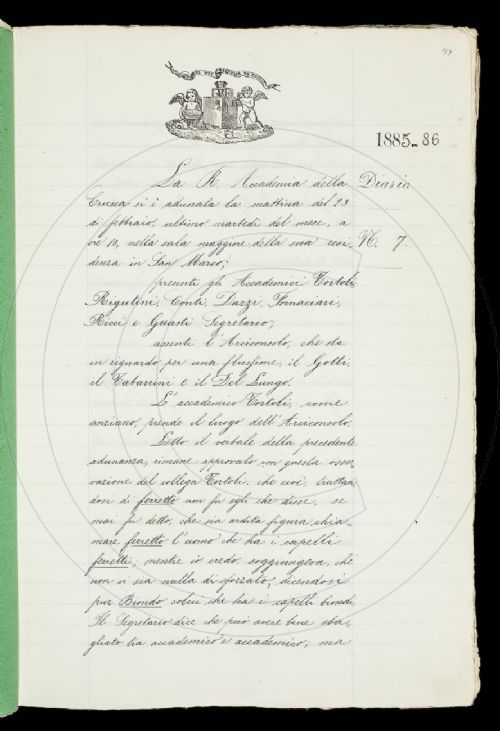 47
1885-86
La R. Accademia della
Diario
Crusca si è adunata la mattina del 23
di febbraio, ultimo martedì del mese, a
ore 10, nella sala maggiore della sua resi
N. 7.
denza in San Marco;
presenti gli Accademici Tortoli,
Rigutini, Conti, Dazzi, Fornaciari,
Ricci e Guasti Segretario;
assenti l'Arciconsolo, che sta
in riguardo per una flussione, il Gotti,
il Tabarrini e il Del Lungo.
L'accademico Tortoli, come
anziano, prende il luogo dell'Arciconsolo.
Letto il verbale della precedente
adunanza, rimane approvato con questa osser
vazione del collega Tortoli: che cioè, trattan
dosi di ferretto non fu egli che disse, se
mai fu detto, che sia ardita figura chia
mare ferretto l'uomo che ha i capelli
ferretti, mentre io credo, soggiungeva, che
non vi sia nulla di sforzato, dicendosi
pur Biondo colui che ha i capelli biondi.
Il Segretario dice che può avere bene sba
gliato tra accademico e accademico; ma